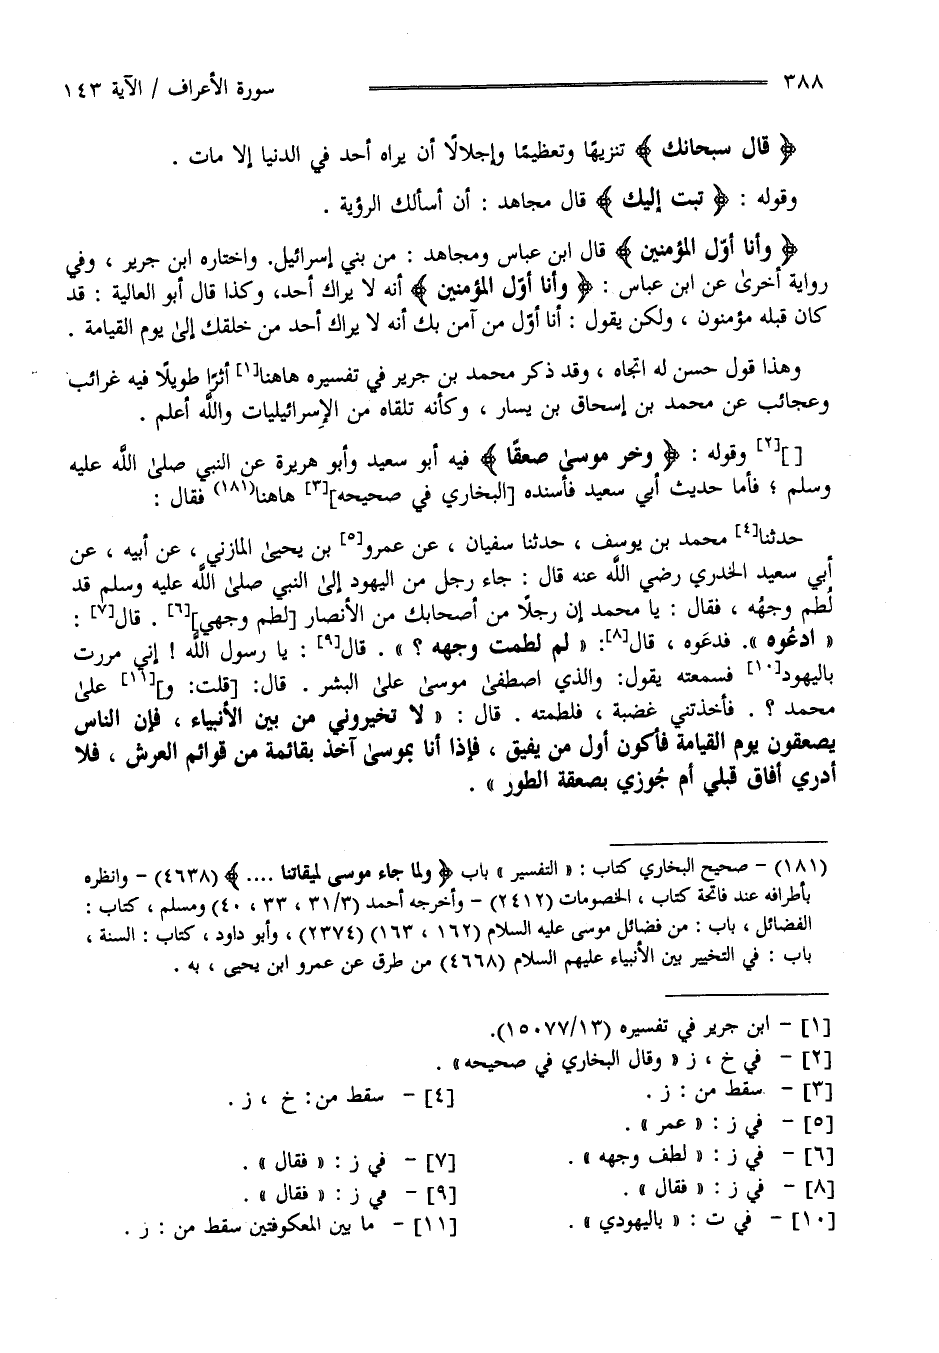 ٣٨٨ سورة الأعراف / الآية ١٤٣
﴿ قال سبحانك ﴾ تنزيهًا وتعظيمًا وإجلالًا أن يراه أحد في الدنيا إلا مات .
وقوله : ﴿ تبت إليك ﴾ قال مجاهد : أن أسألك الرؤية .
﴿ وأنا أوّل المؤمنين ﴾ قال ابن عباس ومجاهد : من بني إسرائيل. واختاره ابن جرير ، وفي
رواية أخرىٰ عن ابن عباس : ﴿ وأنا أوّل المؤمنين ﴾ أنه لا يراك أحد، وكذا قال أبو العالية : قد
كان قبله مؤمنون ، ولكن يقول : أنا أوّل من آمن بك أنه لا يراك أحد من خلقك إلىٰ يوم القيامة .
وهذا قول حسن له اتجاه ، وقد ذكر محمد بن جرير في تفسيره هاهنا[١] أثرًا طويلًا فيه غرائب
وعجائب عن محمد بن إسحاق بن يسار ، وكأنه تلقاه من الإسرائيليات واللَّه أعلم .
[ ][٢] وقوله : ﴿ وخر موسىٰ صعقًا ﴾ فيه أبو سعيد وأبو هريرة عن النبي صلىٰ اللَّه عليه
وسلم ؛ فأما حديث أبي سعيد فأسنده [البخاري في صحيحه][٣] هاهنا(١٨١) فقال :
حدثنا[٤] محمد بن يوسف ، حدثنا سفيان ، عن عمرو[٥] بن يحيىٰ المازني ، عن أبيه ، عن
أبي سعيد الخدري رضي اللَّه عنه قال : جاء رجل من اليهود إلىٰ النبي صلىٰ اللَّه عليه وسلم قد
لُطم وجهُه ، فقال : يا محمد إن رجلًا من أصحابك من الأنصار [لطم وجهي][٦] . قال[٧] :
« ادعُوه ». فدعَوه ، قال[٨]: « لم لطمت وجهه ؟ » . قال[٩] : يا رسول اللَّه ! إني مررت
باليهود[١٠] فسمعته يقول: والذي اصطفىٰ موسىٰ علىٰ البشر . قال: [قلت: و][١٦] علىٰ
محمد ؟ . فأخذتني غضبة ، فلطمته . قال : « لا تخيروني من بين الأنبياء ، فإن الناس
يصعقون يوم القيامة فأكون أول من يفيق ، فإذا أنا بموسىٰ آخذ بقائمة من قوائم العرش ، فلا
أدري أفاق قبلي أم جُوزي بصعقة الطور » .
(١٨١) - صحيح البخاري كتاب : « التفسير » باب ﴿ ولما جاء موسى لميقاتنا .... ﴾ (٤٦٣٨) - وانظره
بأطرافه عند فاتحة كتاب ، الخصومات (٢٤١٢) - وأخرجه أحمد (٣١/٣ ، ٣٣ ، ٤٠) ومسلم ، كتاب :
الفضائل ، باب : من فضائل موسى عليه السلام (١٦٢ ، ١٦٣) (٢٣٧٤) ، وأبو داود ، كتاب : السنة ،
باب : في التخيير بين الأنبياء عليهم السلام (٤٦٦٨) من طرق عن عمرو ابن يحيى ، به .
[١] - ابن جرير في تفسيره (١٥٠٧٧/١٣).
[٢] - في خ ، ز « وقال البخاري في صحيحه» .
[٣] - سقط من : ز . [٤] - سقط من: خ ، ز .
[٥] - في ز : « عمر » .
[٦] - في ز : « لطف وجهه » . [٧] - في ز : « فقال » .
[٨] - في ز : « فقال » . [٩] - في ز : « فقال » .
[١٠] - في ت : « باليهودي » . [١١] - ما بين المعكوفتين سقط من : ز .